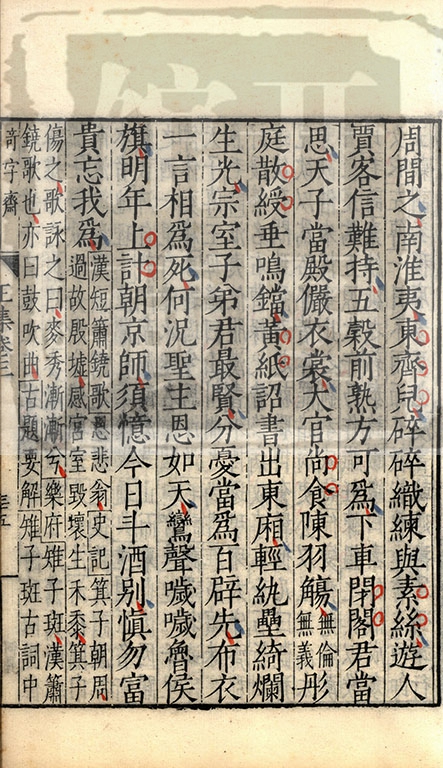 周間之南淮夷東齊兒碎碎織練與素絲遊人
賈客信難持五穀前熟方可爲下車閉閣君當
思天子當殿儼衣裳大官尚食陳羽觴無倫無義彤
庭散綬垂鳴鐺黃紙詔書出東廂輕紈疊綺爛
生光宗室子弟君最賢分憂當爲百辟先布衣
一言相爲死何況聖主恩如天鸞聲噦噦魯侯
旗明年上計朝京師須憶今日斗酒別愼勿富
貴忘我爲
漢短簫鐃歌思悲翁史記箕子朝周
過故殷墟感宮室毀壞生禾黍箕子
傷之歌詠之曰麥秀漸漸兮樂府雉子斑漢簫
鐃歌也亦曰鼓吹曲古題要解雉子斑古詞中
奇字齋